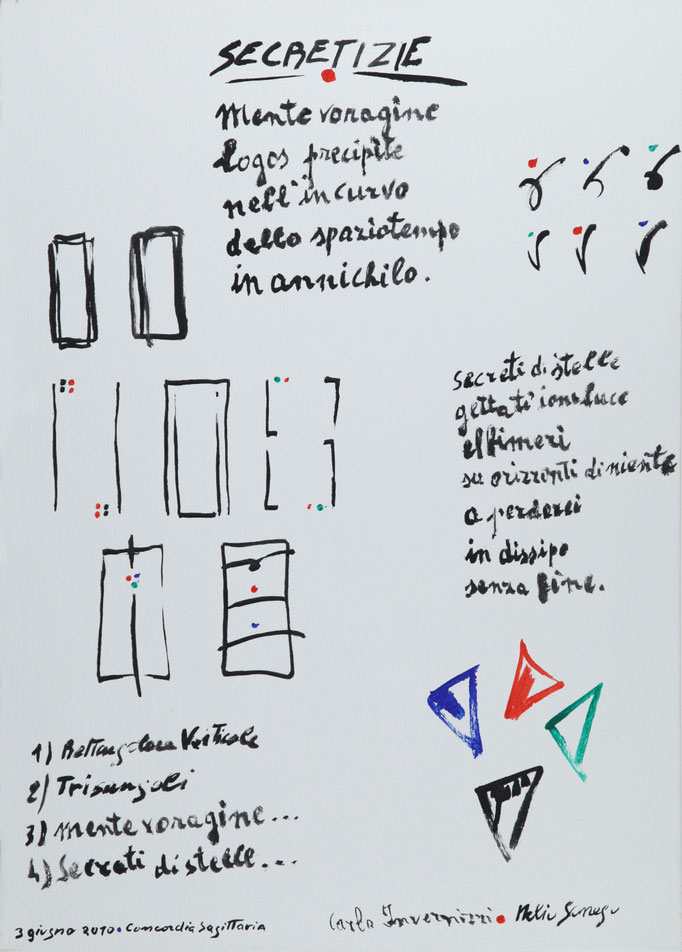 SECRETIZIE
Mente voragine
logos precipite
nell'incurvo
dello spaziotempo
in annichilo.
secreti di stelle
gettati ionoluce
effimeri
su orizzonti di niente
a perderci
in dissipo
senza fine.
1) Rettangolare Verticale
2) Triangoli
3) Mente voragine...
4) Secreti di stelle...
3 giugno 2010 • Concordia Sagittaria
Carlo Invernizzi • Nelio Sonego